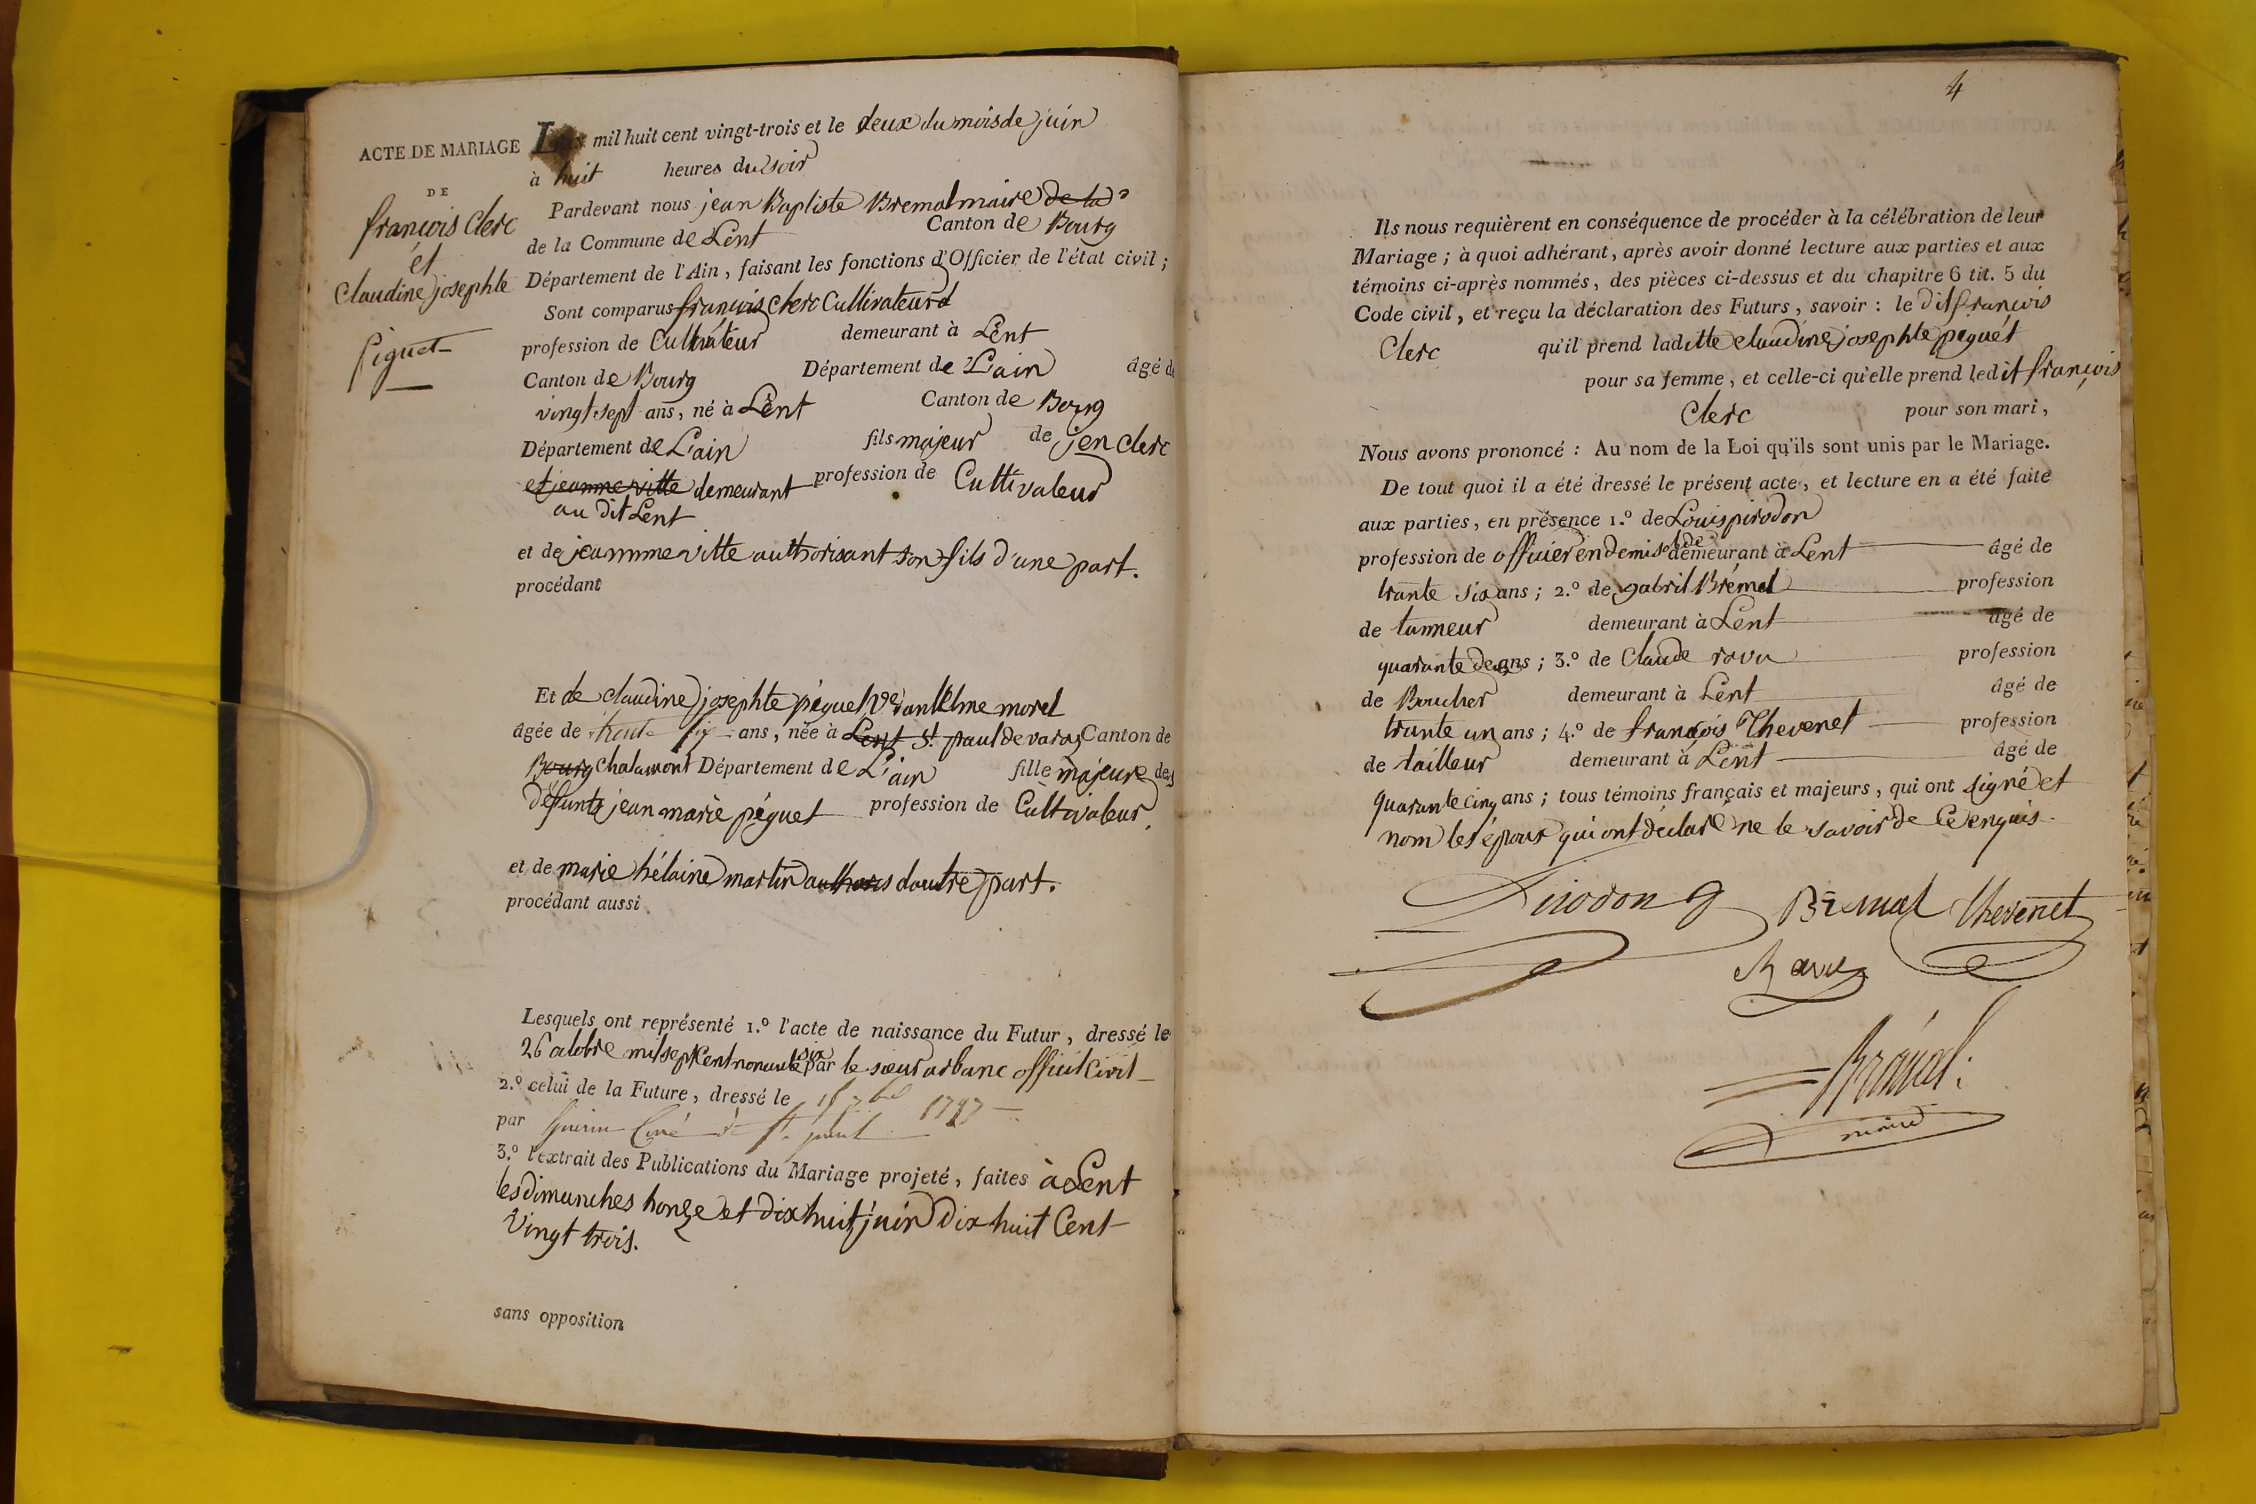 ACTE DE MARIAGE
DE
françois Clerc
et
Claudine josephte
piguet
mil huit cent vingt-trois et le deux du mois de juin
à huit heures du soir
Pardevant nous jean Baptiste Bremal maire de la
de la Commune de Lent Canton de Bourg
Département de l'Ain, faisant les fonctions d'Officier de l'état civil;
Sont comparus françois Clerc Cultivateur d
profession de Cultivateur demeurant à Lent
Canton de Bourg Département de L'ain âgé de
vingt sept ans, né à Lent Canton de Bourg
Département de L'ain fils majeur de jen Clerc
et jeanne vitte demeurant profession de Cultivateur
au dit Lent
et de jeannme vitte authorisant son fils d'une part.
procédant
Et de claudine josephte péguet anthelme morel
âgée de trente six ans, née à Lent St paul de varax Canton de
Bourg Chalamont Département de L'ain fille majeure des
défunts jean marie péguet profession de Cultivateur,
et de marie hélaine martin authoris dautre part.
procédant aussi
Lesquels ont représenté 1.º l'acte de naissance du Futur, dressé le
26 octobre mil sept Cent nonante six par le sieur arbanc officié Civil
2.º celui de la Future, dressé le 15 7bre
par Guerin Curé de St. paul
3.º l'extrait des Publications du Mariage projeté, faites à Lent
les dimanches honze et dix huit juin dix huit Cent
Vingt trois.
sans opposition
4
Ils nous requièrent en conséquence de procéder à la célébration de leur
Mariage; à quoi adhérant, après avoir donné lecture aux parties et aux
témoins ci-après nommés, des pièces ci-dessus et du chapitre 6 tit. 5 du
Code civil, et reçu la déclaration des Futurs, savoir: le dit françois
Clerc qu'il prend laditte claudine josephte péguet
pour sa femme, et celle-ci qu'elle prend ledit françois
Clerc pour son mari,
Nous avons prononcé: Au nom de la Loi qu'ils sont unis par le Mariage.
De tout quoi il a été dressé le présent acte, et lecture en a été faite
aux parties, en présence 1.º de Louis pirodon
profession de officier en demi solde demeurant à Lent âgé de
trante six ans; 2.º de gabril Brémal profession
de tanneur demeurant à Lent âgé de
quarante deux ans; 3.º de Claude ravu profession
de Boucher demeurant à Lent âgé de
trante un ans; 4.º de françois Thevenet profession
de tailleur demeurant à Lent âgé de
quarante cinq ans; tous témoins français et majeurs, qui ont signé et
nom les époux qui ont déclaré ne le savoir de Ce enquis.
Pirodon Brémal Thevenet
Ravu
Brémal
maire